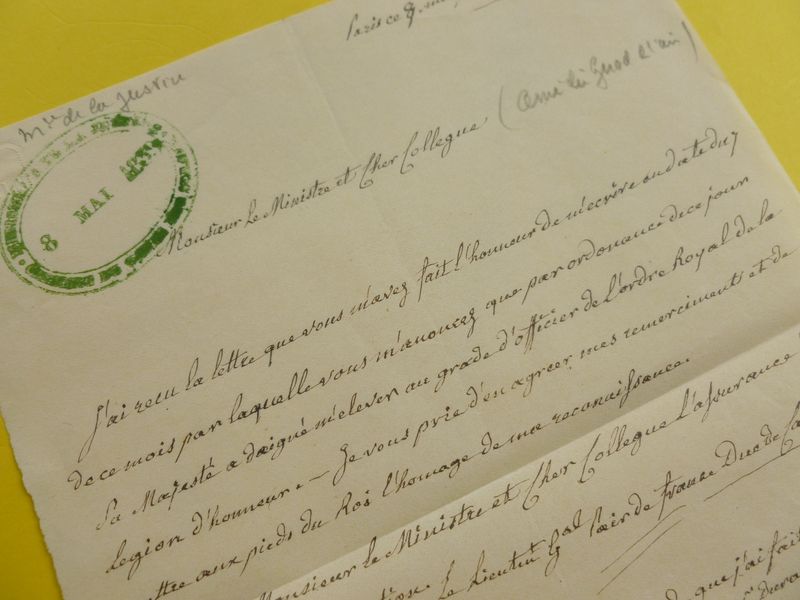 Paris ce 8
Mre de la Justice
8 MAI
Monsieur Le Ministre et Cher Collegue
J'ai recu la lettre que vous m'avez fait l'honneur de m'ecrire en date du 7
de ce mois par laquelle vous m'anoncez que par ordonance de ce jour
Sa Majesté a daigné m'elever au grade d'officier de l'ordre Royal de la
Legion d'honneur. — Je vous prie d'en agreer mes remerciments et de
aux pieds du Roi l'homage de ma reconaissance.
Monsieur le Ministre et Cher Collegue L'assurance
Le Lieutnt Gal Pair de france Duc de
que j'ai fait